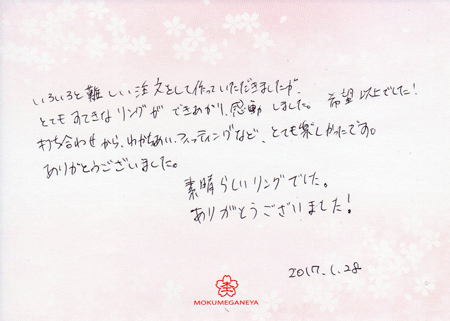 いろいろと難しい注文をして作っていただきましたが、
とてもすてきなリングができあがり、感動しました。希望以上でした！
打ち合わせから、わかちあい、フィッティングなど、とても楽しかったです。
ありがとうございました。
素晴らしいリングでした。
ありがとうございました！
2017.1.28
MOKUMEGANEYA